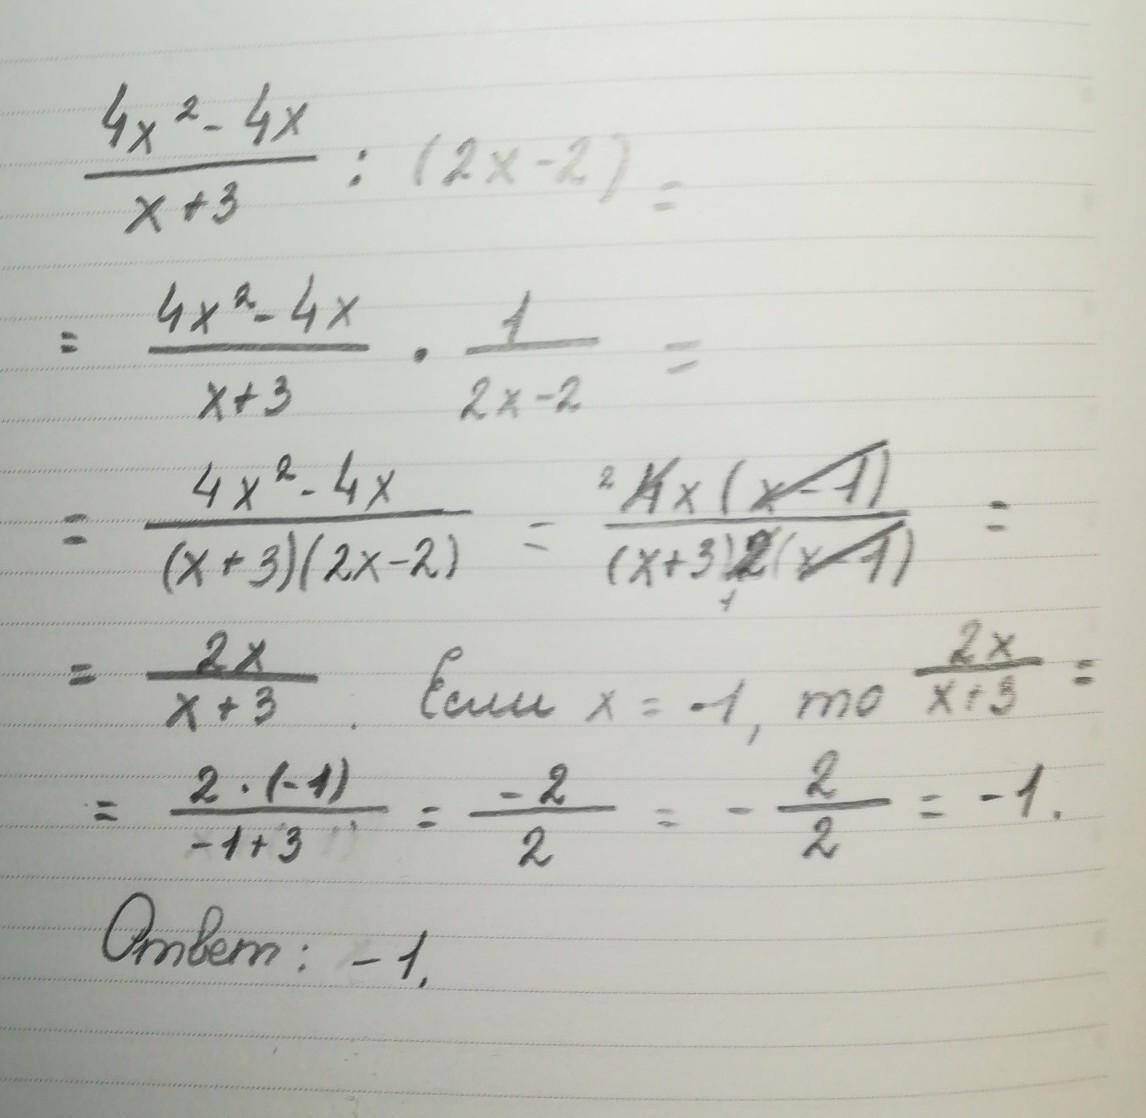 (4x² - 4x)/(x + 3) : (2x - 2) =
= (4x² - 4x)/(x + 3) · 1/(2x - 2) =
= (4x² - 4x)/((x + 3)(2x - 2)) = ²4x(x - 1)/((x + 3)2₁(x - 1)) =
= 2x/(x + 3). Если x = -1, то 2x/(x + 3) =
= (2 · (-1))/(-1 + 3) = -2/2 = - 2/2 = -1.
Ответ: -1.